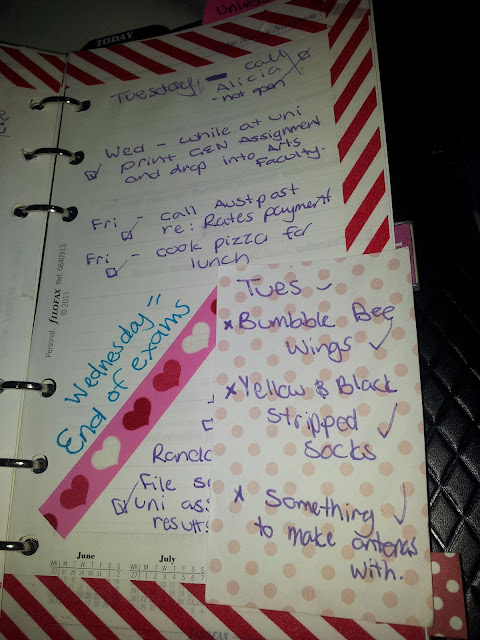 Univers
TODAY
Tuesday - call
Alicia
- not open
Wed - while at uni
print GEN Assignment
and drop into Arts
Faculty.
Fri - call Austpost
re: Rates payment
Fri - cook pizza for
lunch
Wednesday =
End of exams
File
uni ass
results
Tues -
x Bumbble Bee
Wings ✓
x Yellow & Black
Stripped ✓
Socks
x Something ✓
to make antenas
with.
Personal. filOFAX Ref. 6840913
© 2011
June
July
filOFAX